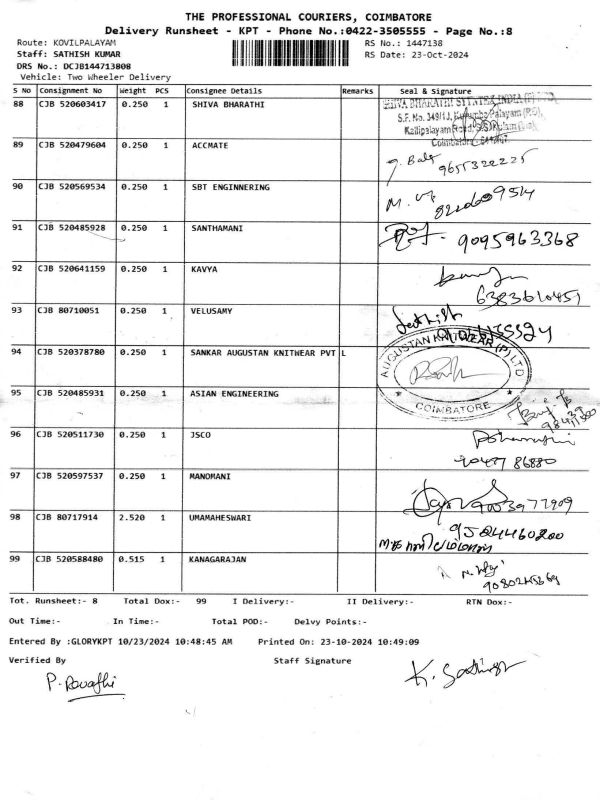 THE PROFESSIONAL COURIERS, COIMBATORE
Delivery Runsheet - KPT - Phone No.:0422-3505555 - Page No.:8
Route: KOVILPALAYAM RS No.: 1447138
Staff: SATHISH KUMAR RS Date: 23-Oct-2024
DRS No.: DCJB144713808
Vehicle: Two Wheeler Delivery
S No Consignment No Weight PCS Consignee Details Remarks Seal & Signature
88 CJB 520603417 0.250 1 SHIVA BHARATHI
SHIVA BHARATHI SYNTEX INDIA (P) LTD
89 CJB 520479604 0.250 1 ACCMATE
9655322225
90 CJB 520569534 0.250 1 SBT ENGINNERING
91 CJB 520485928 0.250 1 SANTHAMANI 9095963368
92 CJB 520641159 0.250 1 KAVYA
6383610451
93 CJB 80710051 0.250 1 VELUSAMY
94 CJB 520378780 0.250 1 SANKAR AUGUSTAN KNITWEAR PVT L
AUGUSTAN KNITWEAR (P) LTD
COIMBATORE
95 CJB 520485931 0.250 1 ASIAN ENGINEERING
96 CJB 520511730 0.250 1 JSCO
97 CJB 520597537 0.250 1 MANOMANI
98 CJB 80717914 2.520 1 UMAMAHESWARI
99 CJB 520588480 0.515 1 KANAGARAJAN
Tot. Runsheet:- 8 Total Dox:- 99 I Delivery:- II Delivery:- RTN Dox:-
Out Time:- In Time:- Total POD:- Delvy Points:-
Entered By :GLORYKPT 10/23/2024 10:48:45 AM Printed On: 23-10-2024 10:49:09
Verified By Staff Signature